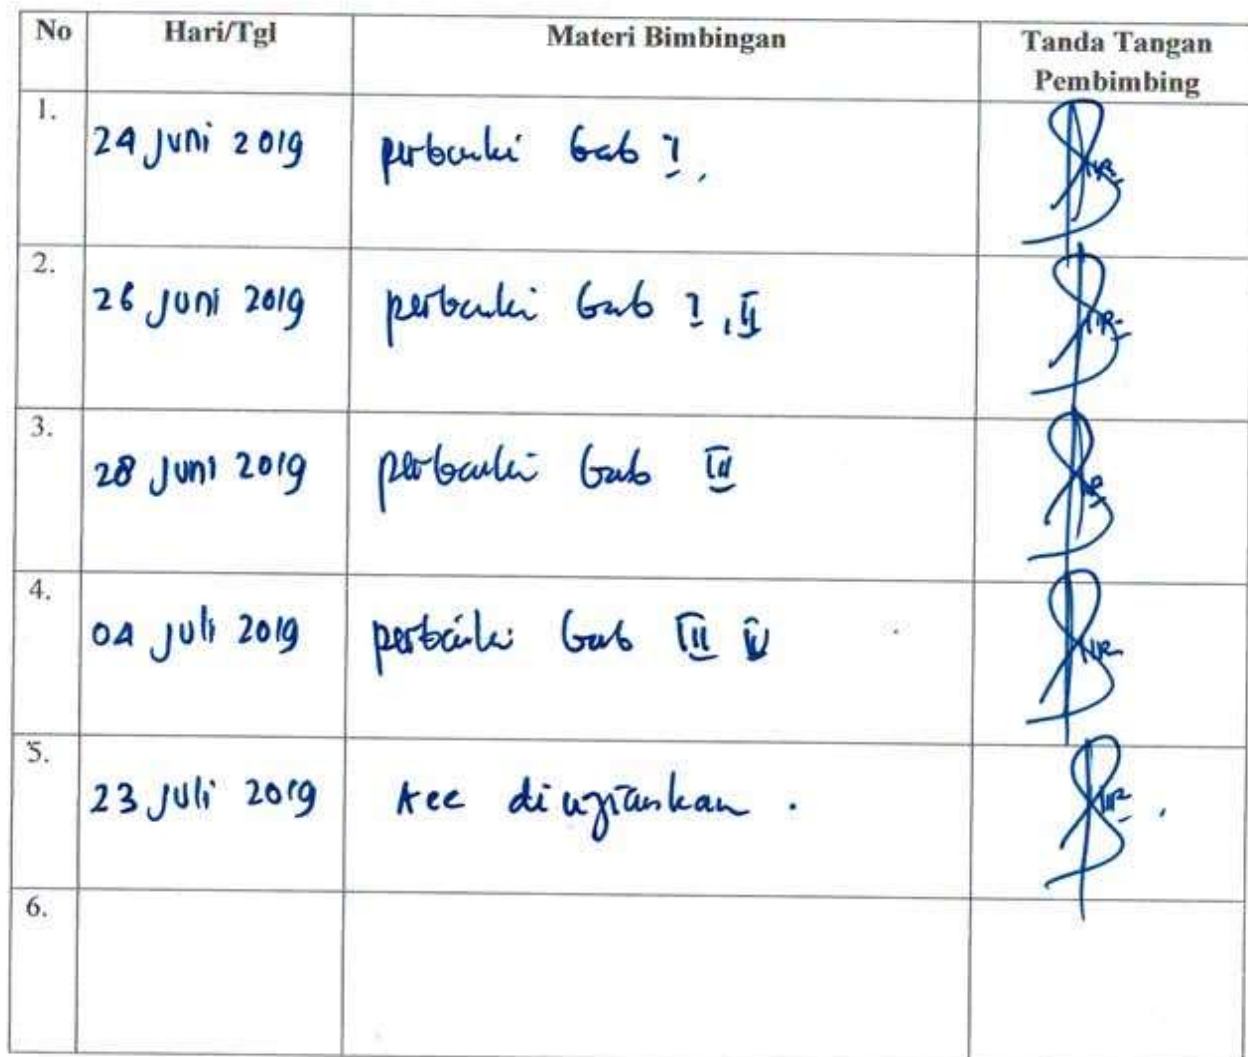 No Hari/Tgl Materi Bimbingan Tanda Tangan
Pembimbing
1. 24 Juni 2019 perbaiki bab I,
2. 26 Juni 2019 perbaiki bab I, II
3. 28 Juni 2019 perbaiki bab III
4. 04 Juli 2019 perbaiki bab III
5. 23 Juli 2019 Acc diujiankan.
6.